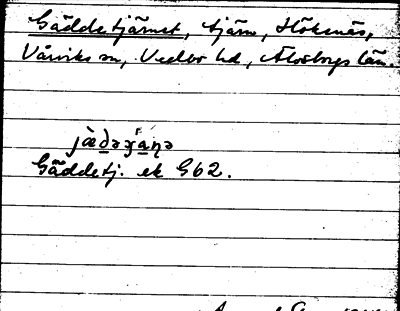 Gäddetjärnet, tjärn, Höksnäs,
Vårviks sn, Vedbo hd, Älvsborgs län.
jæ̀dəʓa̠ɳə
Gäddetj. ek G62.